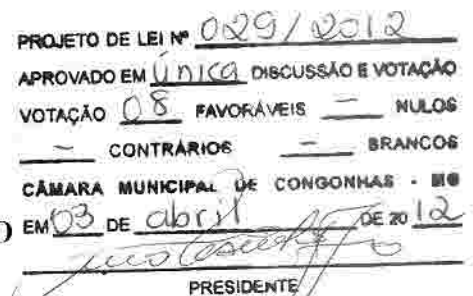 PROJETO DE LEI Nº 029/2012
APROVADO EM Única DISCUSSÃO E VOTAÇÃO
VOTAÇÃO 08 FAVORÁVEIS — NULOS
— CONTRÁRIOS — BRANCOS
CÂMARA MUNICIPAL DE CONGONHAS - MG
O EM 03 DE abril DE 2012
PRESIDENTE